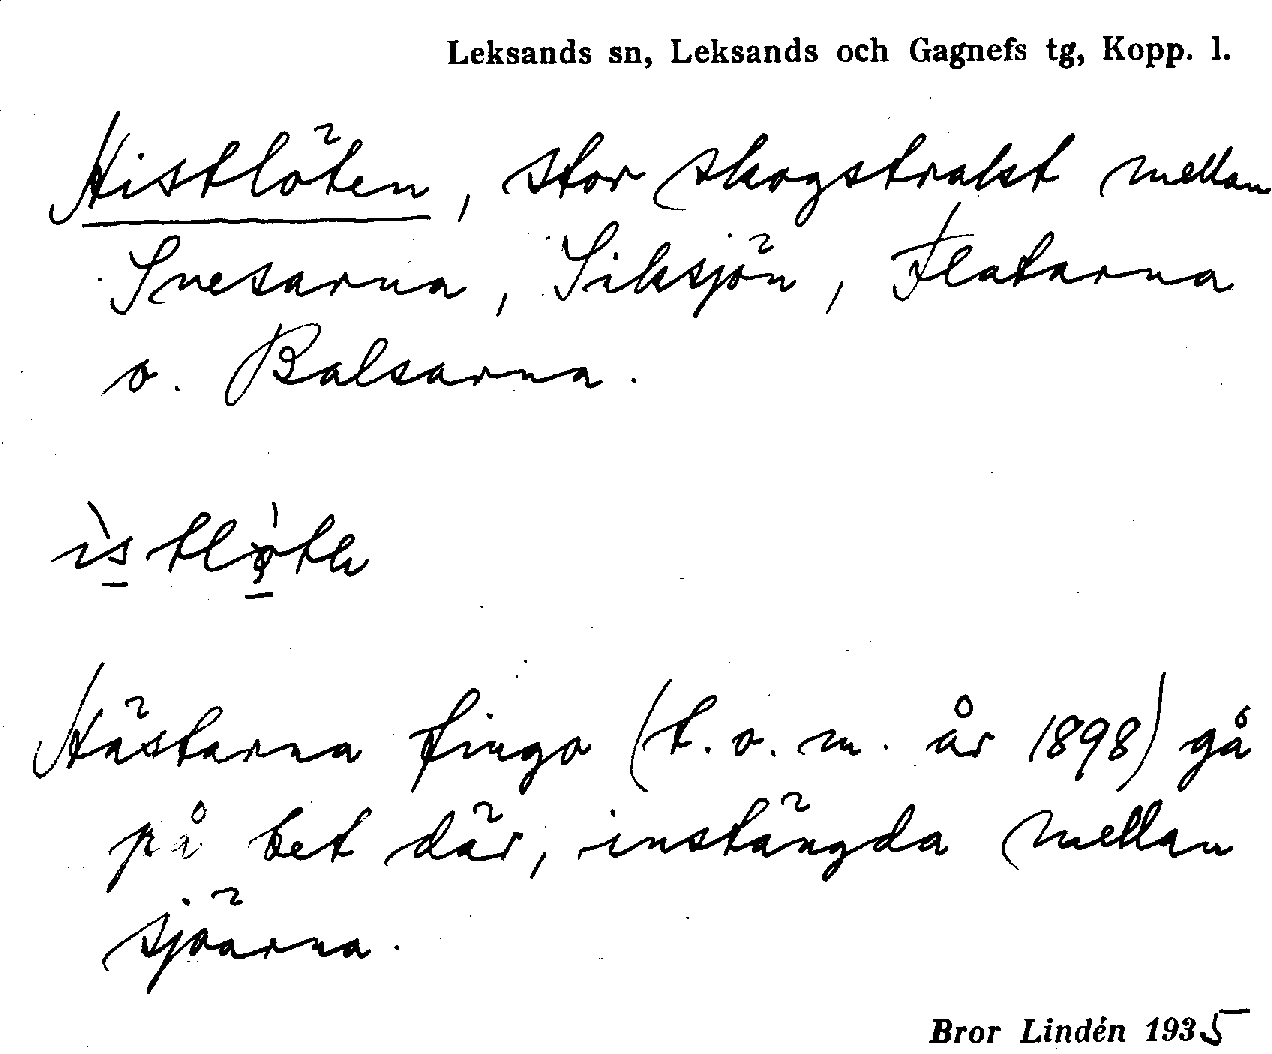 Leksands sn, Leksands och Gagnefs tg, Kopp. l.
Histlöten, stor skogstrakt mellan
Svesarna, Siksjön, Flatarna
o. Balsarna.
Hästarna fingo (t.o.m. år 1898) gå
på bet där, instängda mellan
sjöarna.
Bror Lindén 1935